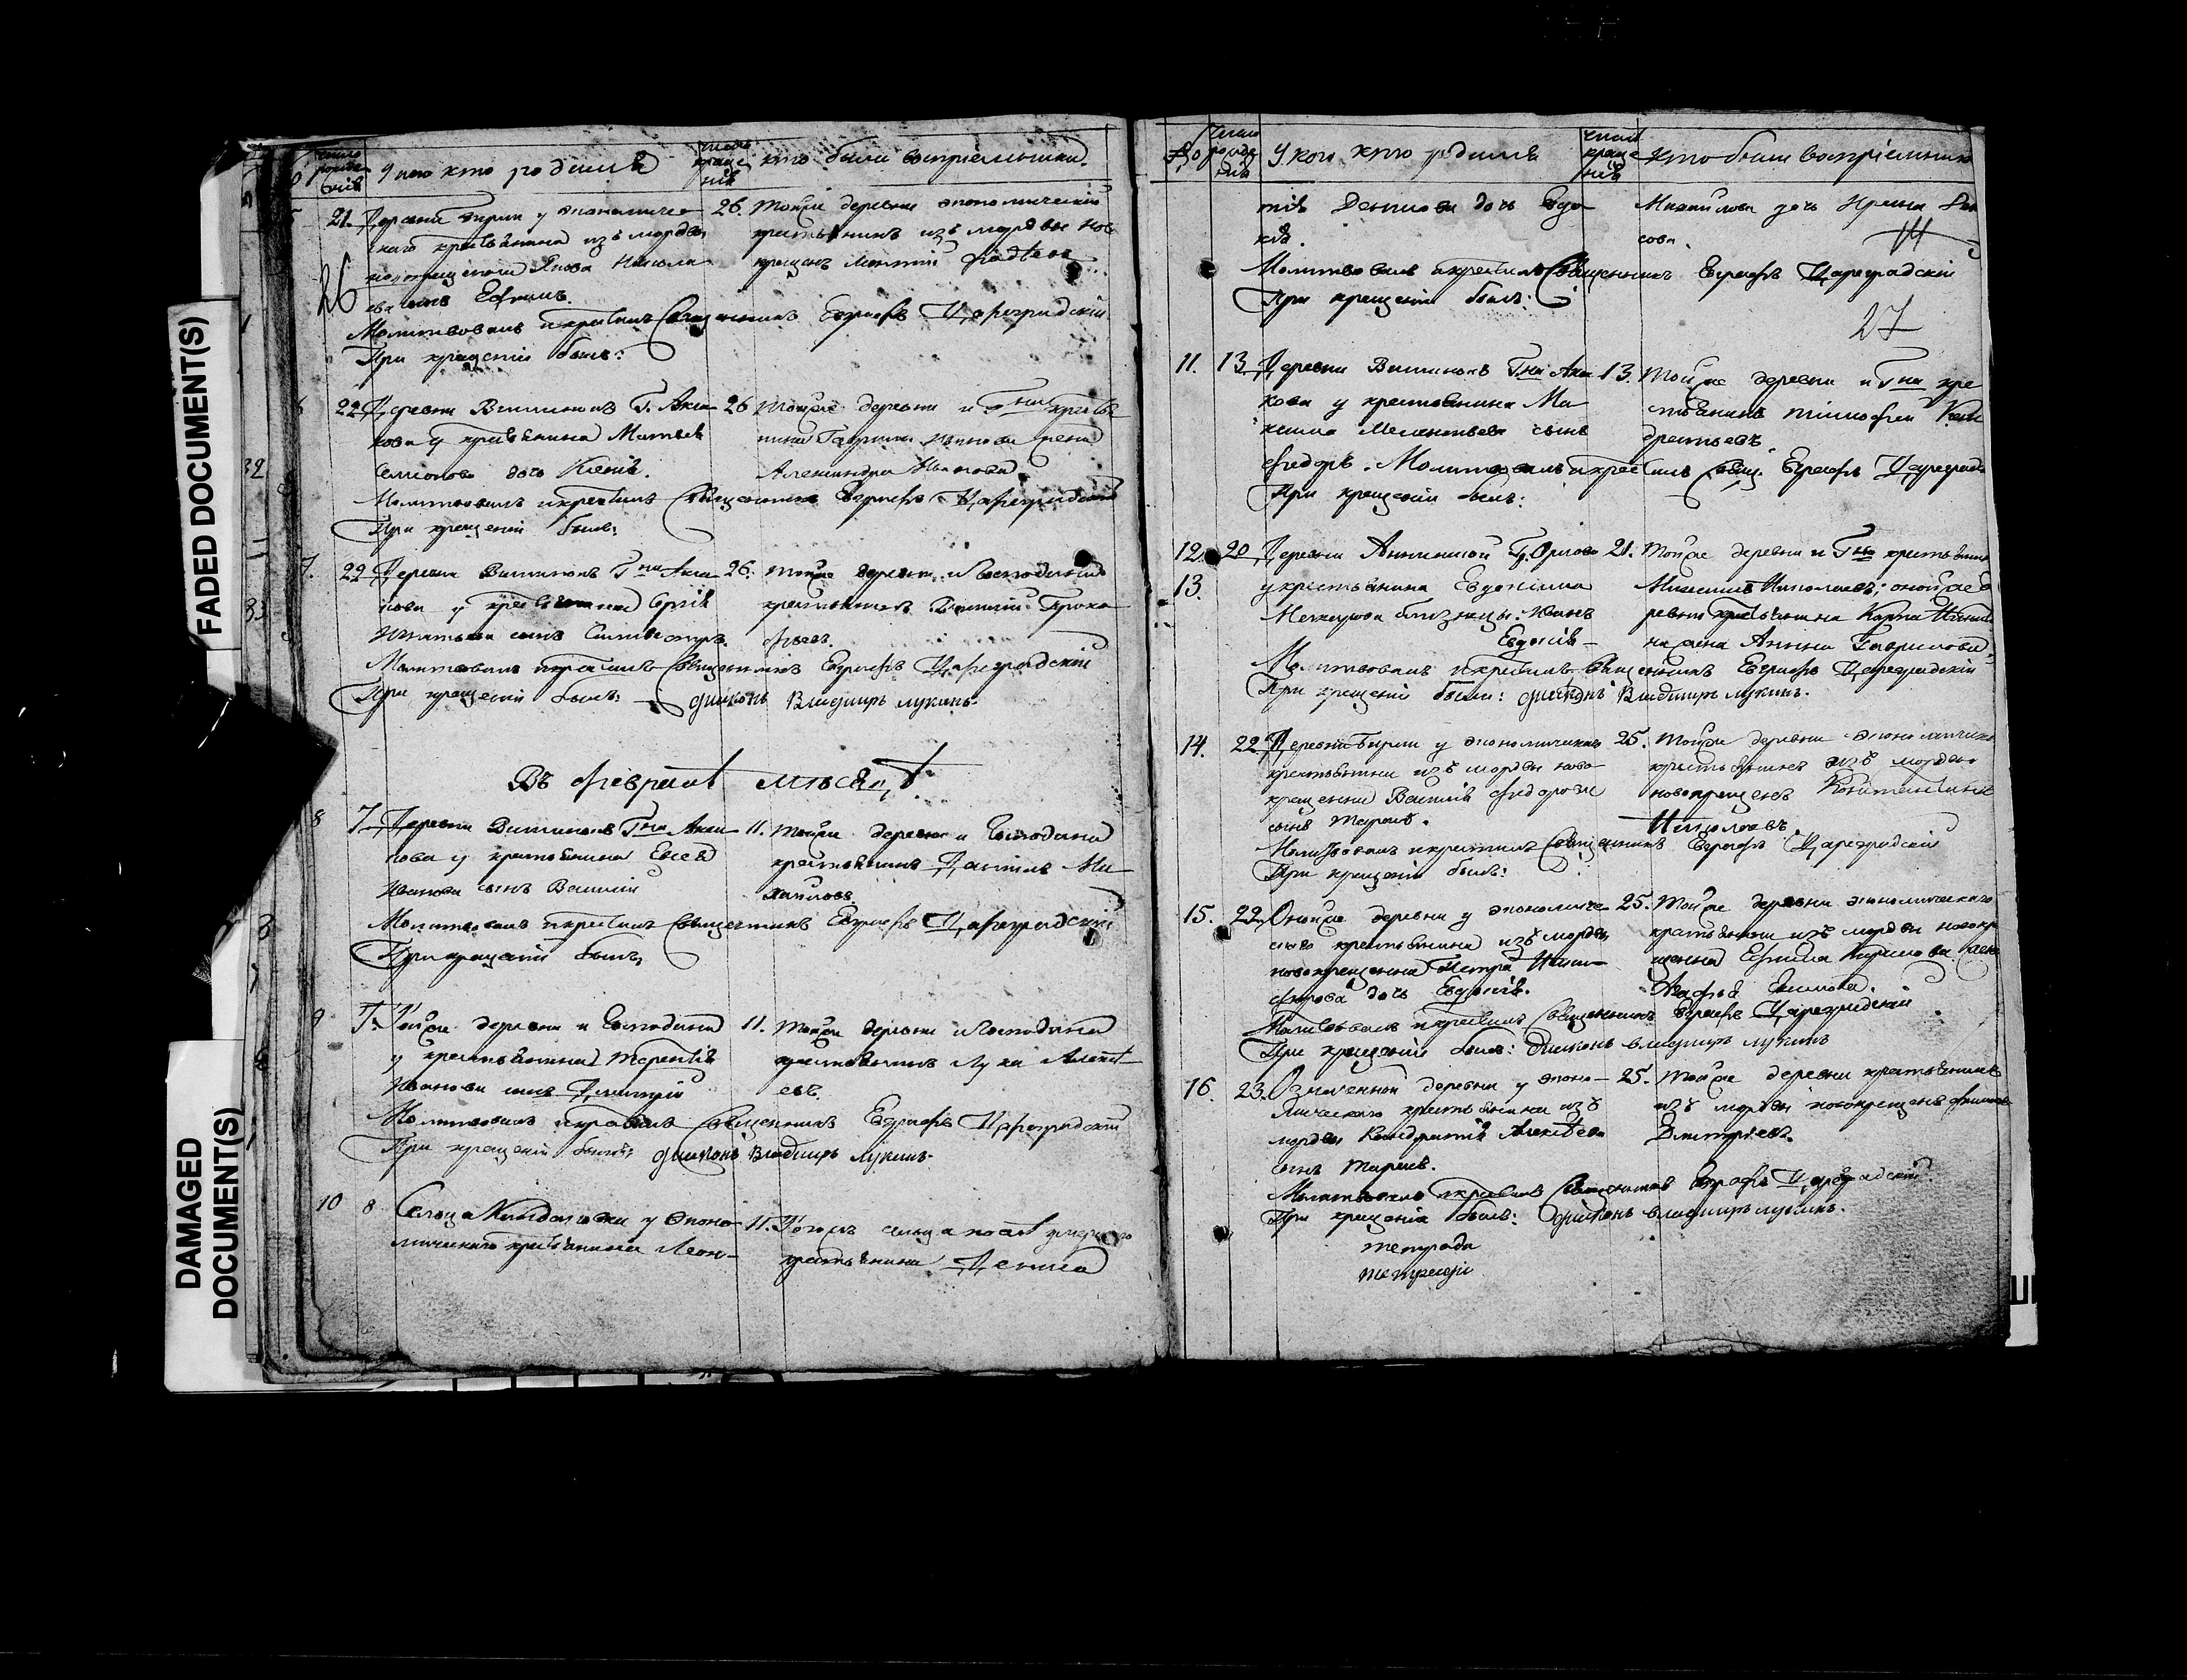 FADED DOCUMENT(S)
DAMAGED
DOCUMENT(S)
число рожде нія
у кого кто родился
число креще нія
кто были воспріемники.
21. Деревни Бирли у экономиче-
скаго крестьянина изъ мордвы
новокрещенаго Якова Никола-
ева сынъ Ефимъ.
26. Тойже деревни экономическій
крестьянинъ изъ мордвы ново
крещенъ
26
Молитвовалъ и крестилъ священникъ Евграфъ Цареградскій
При крещеніи былъ:
22. Деревни Вишенокъ Г. Акса-
кова у крестьянина Матвея
Семіонова дочь Ксенія.
26 Тойже деревни и Гна крестья
нина жена
Александра Иванова
Молитвовалъ и крестилъ священникъ Евграфъ Цареградскій
При крещеніи былъ:
7. 22. Деревни Вишенокъ Гна Акса-
кова у крестьянина Сергія
Игнатьева сынъ Сильвестръ.
26. Тойже деревни и господина
крестьянинъ Василій Проко
фьевъ.
Молитвовалъ и крестилъ священникъ Евграфъ Цареградскій
При крещеніи былъ: діаконъ Владимиръ Лукинъ.
Въ февралѣ мѣсяцѣ
8 7. Деревни Вишенокъ Гна Акса-
кова у крестьянина Евсея
Иванова сынъ Василій
11. Тойже деревни и господина
крестьянинъ Данилъ Ми-
хайловъ.
Молитвовалъ и крестилъ священникъ Евграфъ Цареградскій
При крещеніи былъ:
9 7. Тойже деревни и господина
у крестьянина Терентія
Иванова сынъ Дмитрій
11. Тойже деревни и господина
крестьянинъ Лука Алексѣ-
евъ.
Молитвовалъ и крестилъ священникъ Евграфъ Цареградскій
При крещеніи былъ: діаконъ Владимиръ Лукинъ.
10 8 Сельца Кандаловки у эконо-
мическаго крестьянина Леон-
11. Тогожъ сельца послѣ умершаго
крестьянина Дениса
число рожде нія
У кого кто родился
число креще нія
кто были воспріемники
тія Денисова дочь Евдо-
кія.
Михайлова дочь Ирина
14
Молитвовалъ и крестилъ священникъ Евграфъ Цареградскій
При крещеніи былъ:
27
11. 13. Деревни Вишенокъ Гна Акса
кова у крестьянина Ма
ксима Мелентьева сынъ
Федоръ. Молитвовалъ и крестилъ свящ. Евграфъ Цареградс
13. Тойже деревни и Гна кре
стьянинъ Тимофей Кон
дратьевъ.
При крещеніи былъ:
12. 20. Деревни Анненкой Г. Орлова
13. у крестьянина Евдокима
Меркурова близнецы: Иванъ
Евдокія
21. Тойже деревни и Гна крестьянинъ
Николаевъ; онойже де
ревни крестьянина Карпа
жена Анна Гаврилова.
Молитвовалъ и крестилъ священникъ Евграфъ Цареградскій
При крещеніи были: діаконъ Владимиръ Лукинъ.
14. 22. Деревни Бирли у экономическаго
крестьянина изъ мордвы ново
крещенна Василія Федорова
сынъ Тарасъ.
25. Тойже деревни экономическ
крестьянинъ изъ мордвы
новокрещенъ Константинъ
Николаевъ.
Молитвовалъ и крестилъ священникъ Евграфъ Цареградскій
При крещеніи былъ:
15. 22. Онойже деревни у экономиче-
скаго крестьянина изъ мордвы
новокрещенна Петра Ники-
форова дочь Евдокія.
25. Тойже деревни экономическаго
крестьянина изъ мордвы новокре
щенна Кирилова жена
Марфа
Молитвовалъ и крестилъ священникъ Евграфъ Цареградскій
При крещеніи былъ: діаконъ Владимиръ Лукинъ
16. 23. Означенной деревни у эконо-
мическаго крестьянина изъ
мордвы Кондратія Алексѣева
сынъ Тарасъ.
25. Тойже деревни крестьянинъ
изъ мордвы новокрещенъ
Дмитріевъ.
Молитвовалъ и крестилъ священникъ Евграфъ Цареградскій.
При крещеніи былъ: діаконъ Владимиръ Лукинъ.